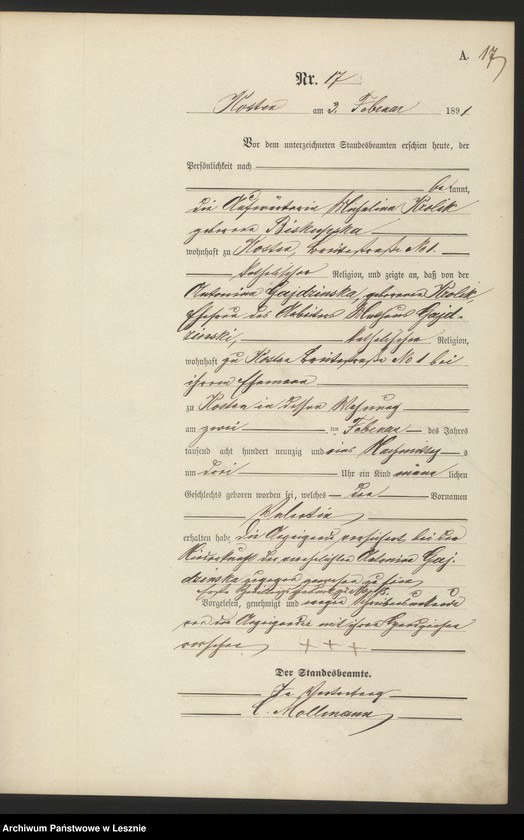 A. 17
Nr. 17
Kosten am 3. Februar 1891
Vor dem unterzeichneten Standesbeamten erschien heute, der
Persönlichkeit nach
bekannt,
die Aufwärterin Michalina Krolik
geborene
wohnhaft zu Kosten, Breitestraße No 1.
katholischer Religion, und zeigte an, daß von der
Antonina Gajdzinska, geborenen Krolik
Ehefrau des Arbeiters Gajd-
zinski, katholischer Religion,
wohnhaft zu Kosten Breitestraße No 1 bei
ihrem Ehemann
zu Kosten in dessen Wohnung
am zwei ten Februar des Jahres
tausend acht hundert neunzig und eins Nachmittags
um drei Uhr ein Kind männlichen
Geschlechts geboren worden sei, welches den Vornamen
Valentin
erhalten habe. Die Anzeigende versichert bei der
Niederkunft der verehelichten Antonina Gaj-
dzinska zugegen gewesen zu sein
Vorgelesen, genehmigt und wegen Schreibensunkunde
von der Anzeigenden mit ihrem Handzeichen
versehen +++
Der Standesbeamte.
In Vertretung
C. Mollmann
Archiwum Państwowe w Lesznie